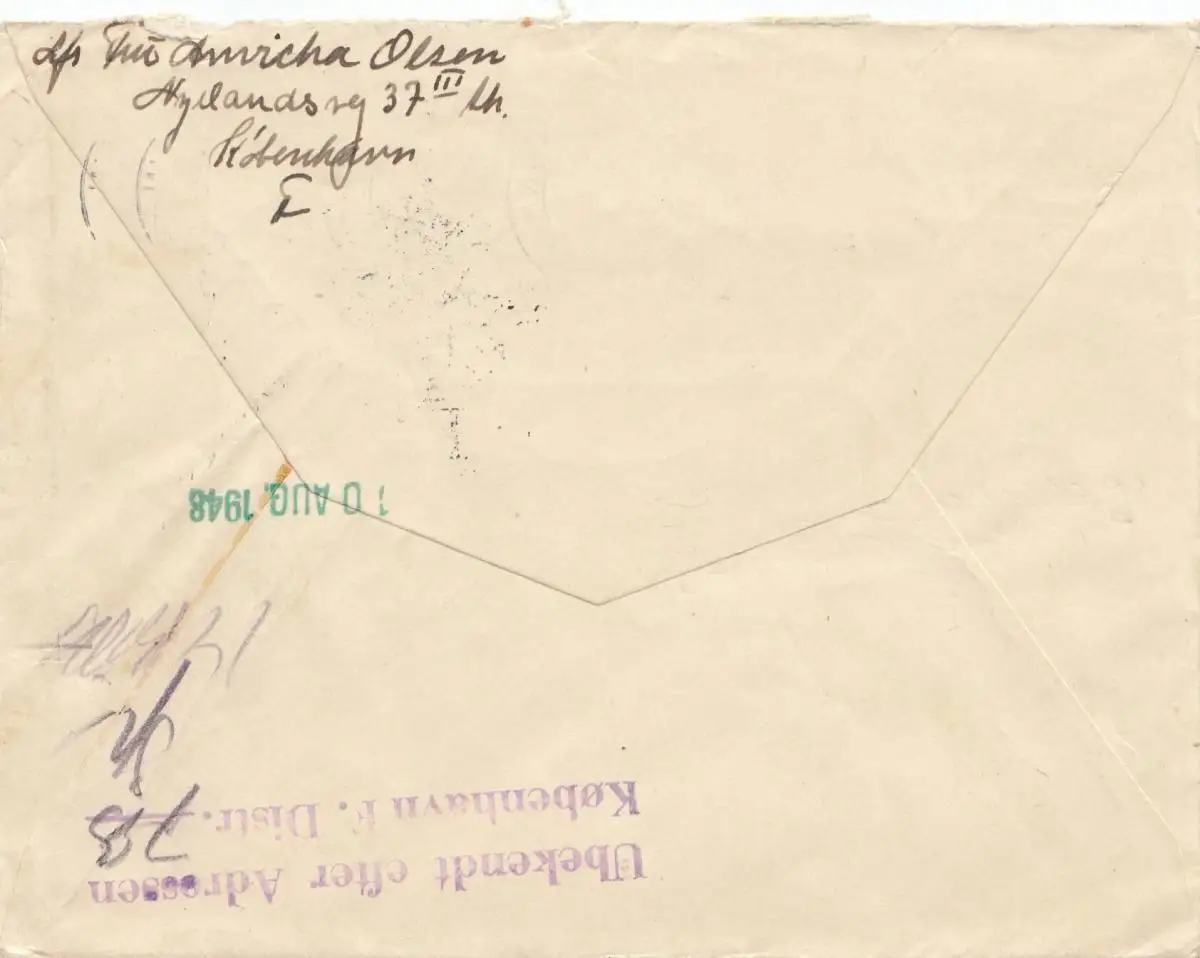 Afs Fru Anvicha Olsen
Nylandsvej 37 III th.
København
F
10 AUG. 1948
73
Ubekendt efter Adressen
København F. Distr.